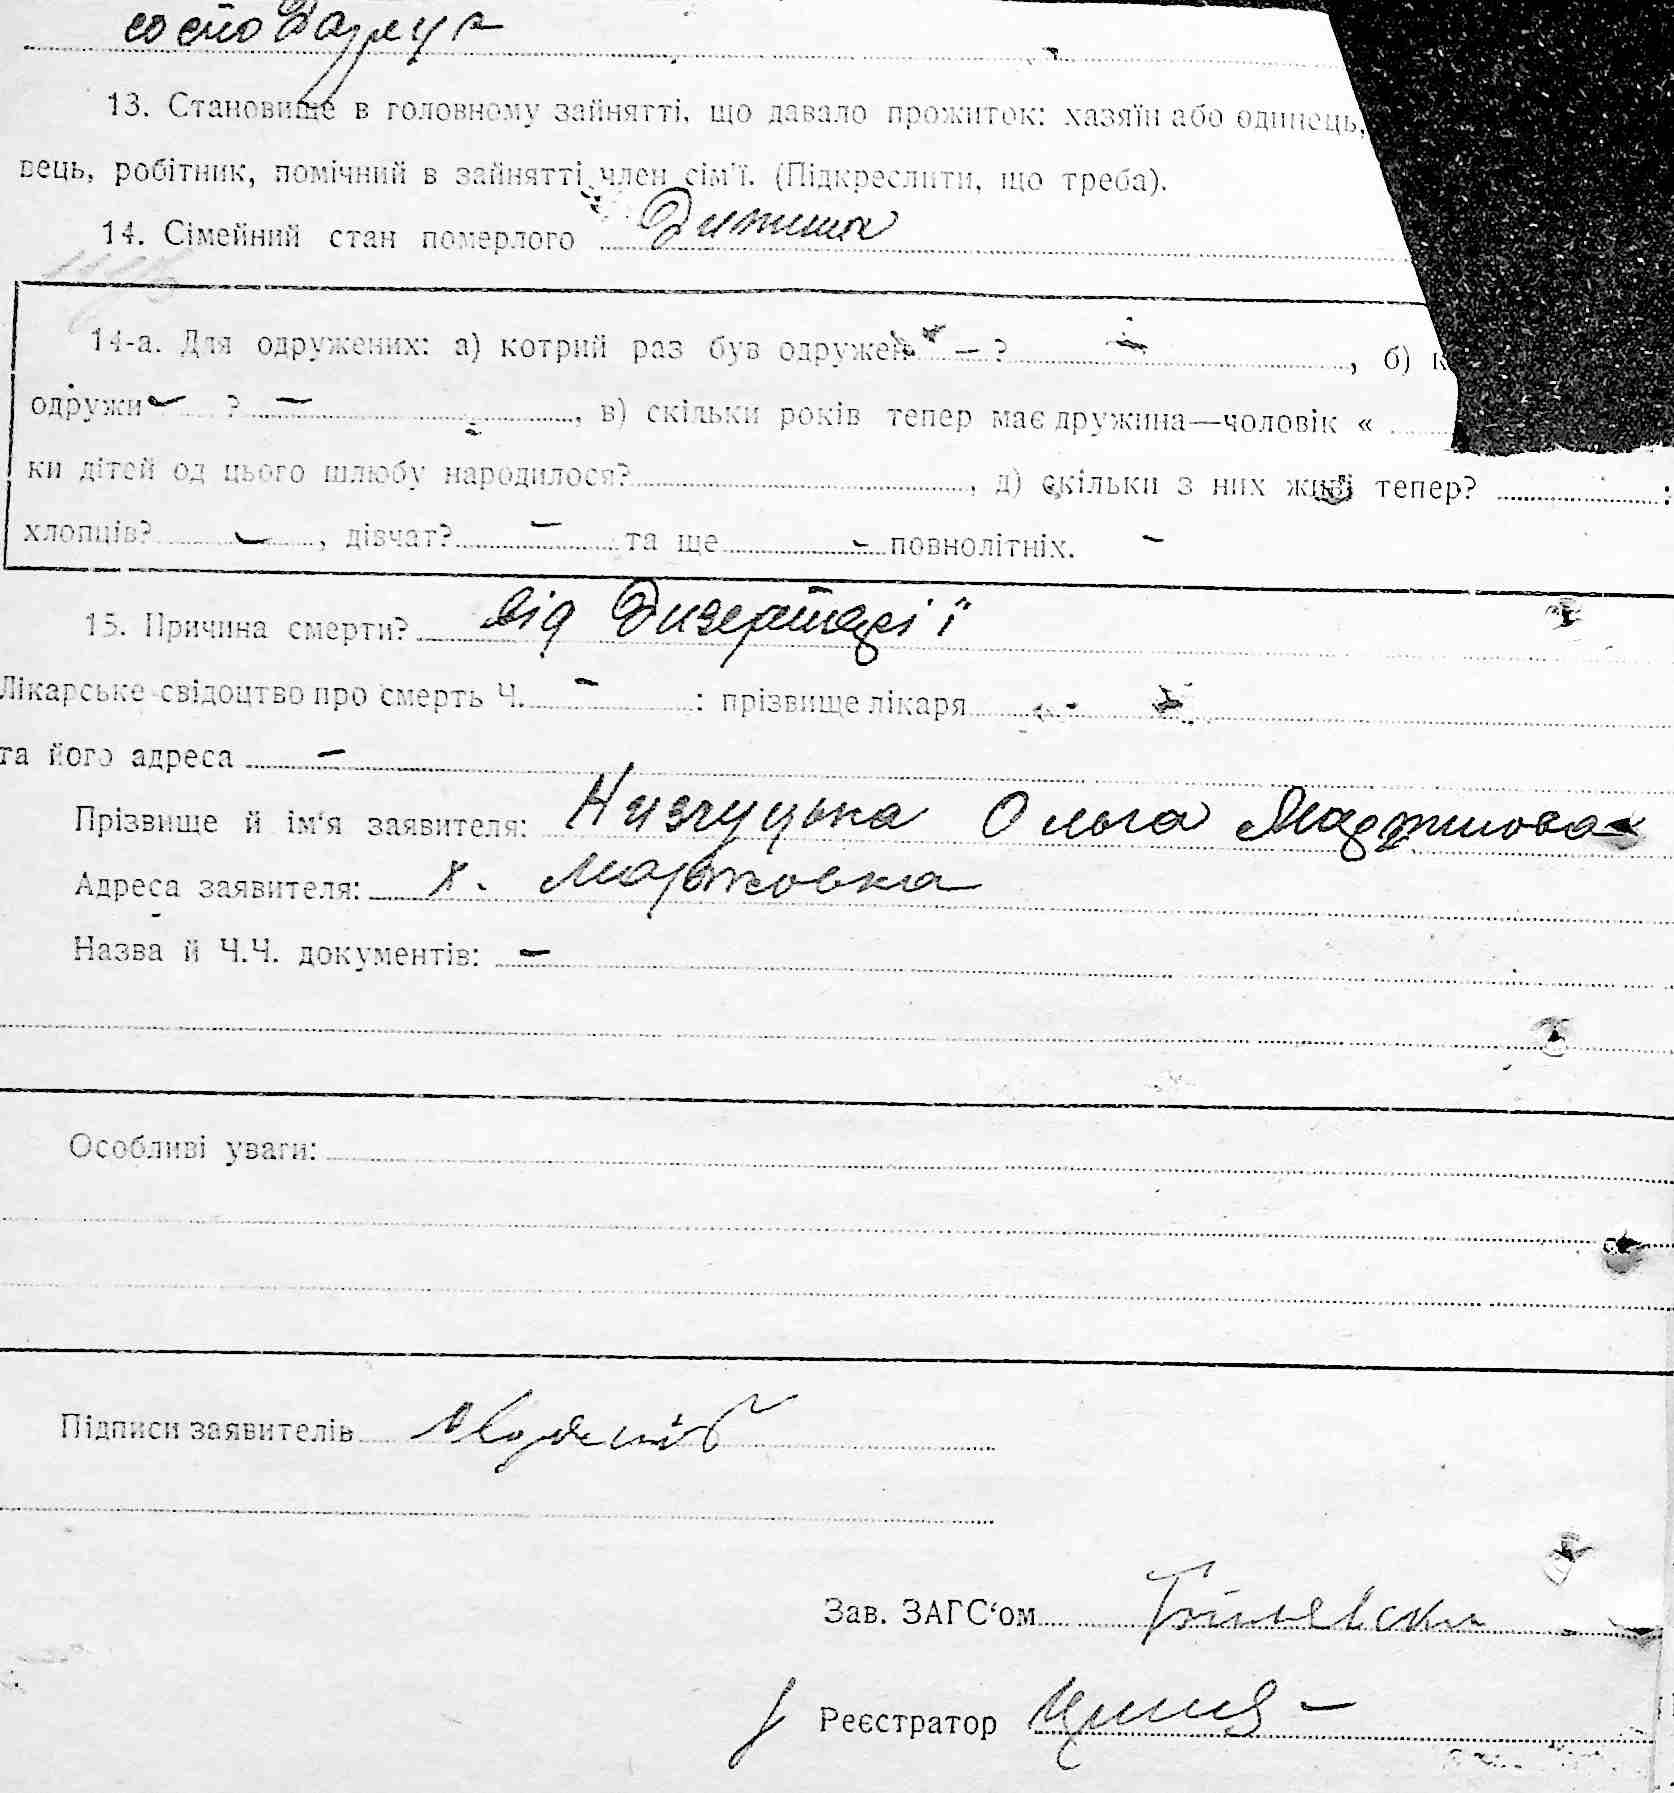 13. Становище в головному зайнятті, що давало прожиток: хазяїн або одинець,
вець, робітник, помічний в зайнятті член сім'ї. (Підкреслити, що треба).
14. Сімейний стан померлого Дитина
14-а. Для одружених: а) котрий раз був одружен — ? , б) к
одружи ? — , в) скільки років тепер має дружина—чоловік «
ки дітей од цього шлюбу народилося? , д) скільки з них живі тепер? :
хлопців? — , дівчат? — та ще — повнолітніх. —
15. Причина смерти? від Дизертацеії
Лікарське свідоцтво про смерть Ч. — : прізвище лікаря
та його адреса —
Прізвище й ім'я заявителя: Ольга
Адреса заявителя: х.
Назва й Ч.Ч. документів: —
Особливі уваги:
Підписи заявителів
Зав. ЗАГС'ом
Реєстратор